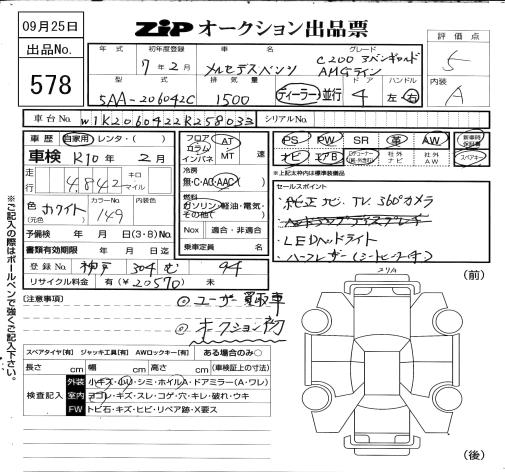 09月25日
ZIP オークション出品票
出品No.
578
評価点
5
内装
A
年式 初年度登録 車名 グレード
7年2月 メルセデスベンツ C200アバンギャルド AMGライン
型式 排気量 ドア ハンドル
5AA-206042C 1500 ディーラー 並行 4 左・右
車台No. W1K2060422R258033 シリアルNo.
車歴 自家用・レンタ・( )
車検 R10年2月
走行 4,842 キロ マイル
色(元色) ホワイト カラーNo. 149 内装色
予備検 年 月 日(3・8)No.
書類有効期限 年 月 日迄
登録No. 神戸 304 む 94
リサイクル料金 有(¥20570) 未
フロア コラム インパネ AT MT 速
冷房 無・C・AC・AAC
燃料 ガソリン・軽油・電気・その他( )
Nox 適合・非適合
乗車定員 名
PS PW SR 革 AW 新車時保証書
ナビ エアB 社外ナビ 社外AW スペアキー
※上記太枠内は標準装備品
セールスポイント
・純正ナビ TV 360°カメラ
・LEDヘッドライト
・ハーフレザー(シートヒーター付)
(注意事項)
◎ユーザー買取車
◎オークション初
スペアタイヤ[有] ジャッキ工具[有] AWロックキー[有] ある場合のみ○
長さ cm 幅 cm 高さ cm (車検証上の寸法)
検査記入
外装 小キズ・小U・シミ・ホイルA・ドアミラー(A・ワレ)
室内 ヨゴレ・キズ・スレ・コゲ・穴・キレ・破れ・ウキ
FW トビ石・キズ・ヒビ・リペア跡・X要ス
(前)
(後)
※ご記入の際はボールペンで強くご記入下さい。